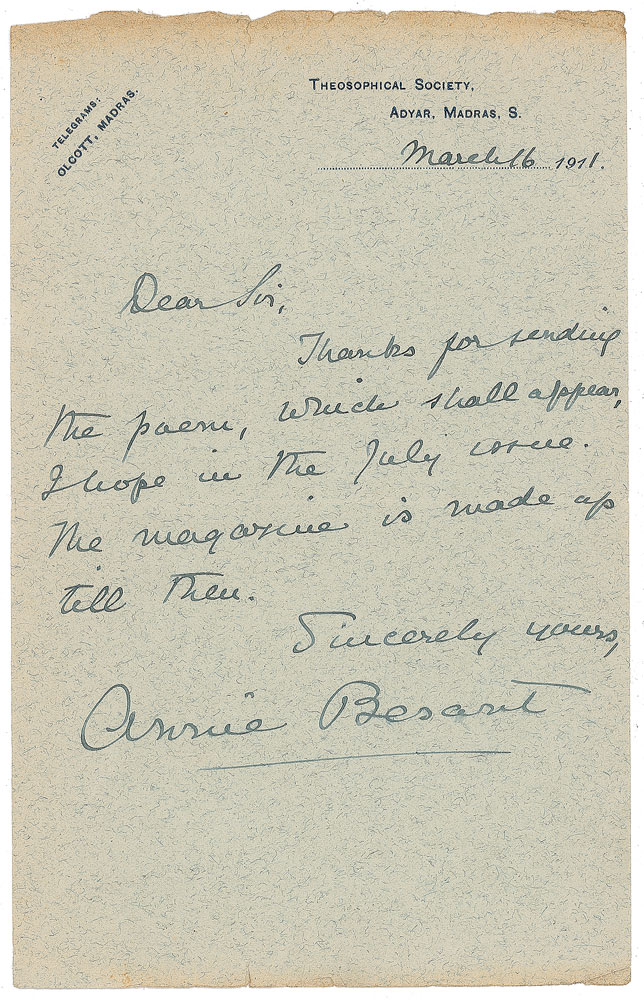 TELEGRAMS:
OLCOTT, MADRAS.
THEOSOPHICAL SOCIETY,
ADYAR, MADRAS, S.
March 16 1911.
Dear Sir,
Thanks for sending
the poem, which shall appear,
I hope in the July issue.
The magazine is made up
till then.
Sincerely yours,
Annie Besant